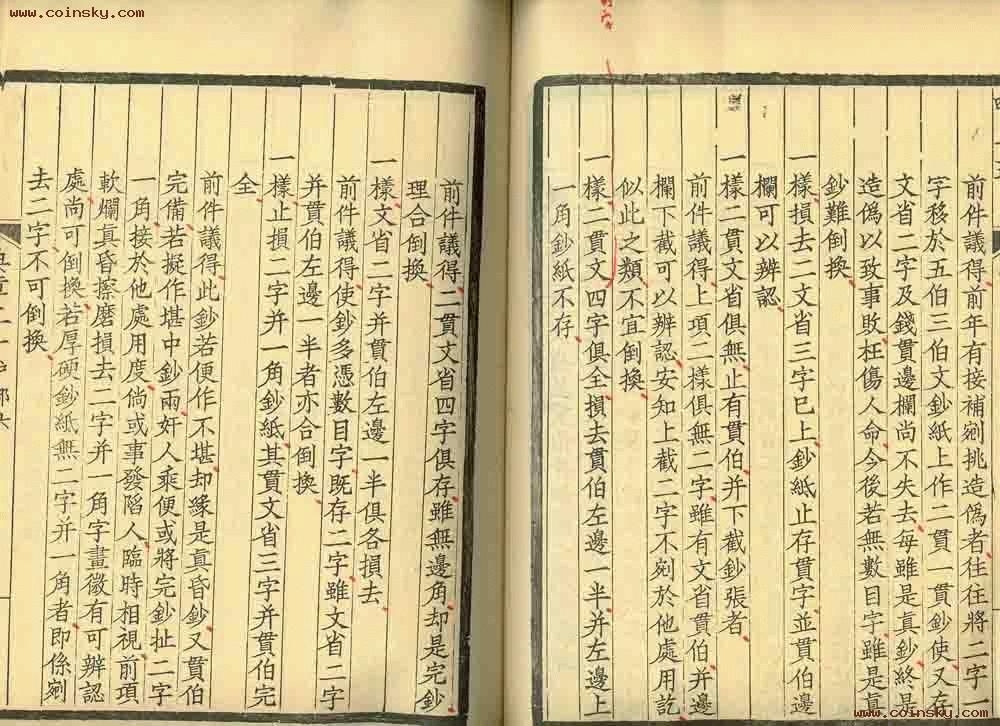 www.coinsky.com
www.coinsky.com
前件議得前年有接補剜挑造偽者徃徃將二字一
字移於五伯三伯文鈔紙上作二貫一貫鈔使又存
文省二字及錢貫邊欄尚不失去每雖是真鈔終是
造偽以致事敗枉傷人命今後若無數目字雖是真
鈔難倒換
一樣損去二文省三字巳上鈔紙止存貫字並貫伯
欄可以辨認
一樣二貫文省俱無止有貫伯并下截鈔張者
前件議得上項二樣俱無二字雖有文省貫伯并邊
欄下截可以辨認安知上截二字不剜於他處用訖
似此之類不宜倒換
一樣二貫文四字俱全損去貫伯左邊一半并左邊上
一角鈔紙不存
前件議得二貫文省四字俱存雖無邊角却是完鈔
理合倒換
一樣文省二字并貫伯左邊一半俱各損去
前件議得使鈔多憑數目字既存二字雖文省二字
并貫伯左邊一半者亦合倒換
一樣止損二字并一角鈔紙其貫文省三字并貫伯完
全
前件議得此鈔若便作不堪却緣是真昏鈔又貫伯
完備若擬作堪中鈔兩奸人乘便或將完鈔扯二字
一角接於他處用度倘或事發陷人臨時相視前項
軟爛真昏擦磨損去二字并一角字畫微有可辨認
處尚可倒換若厚硬鈔紙無二字并一角者即係剜
去二字不可倒換
www.coinsky.com
www.coinsky.com